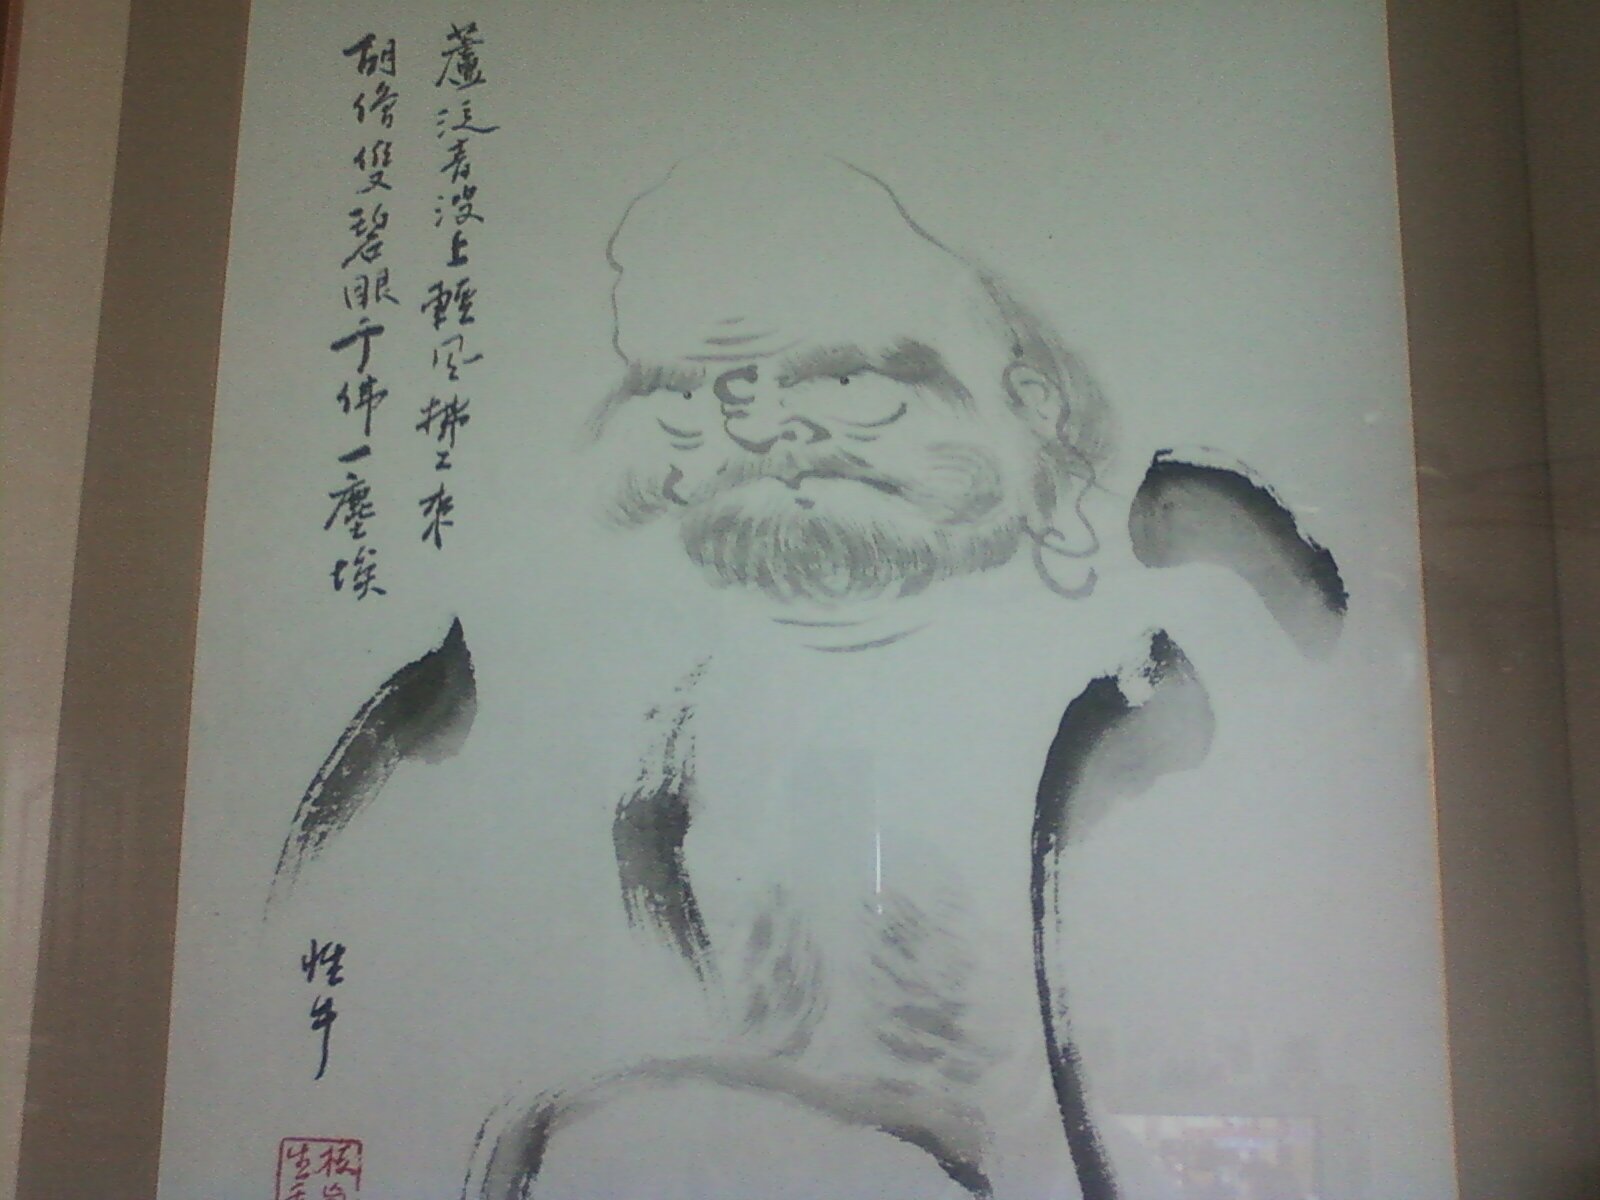 蘆泛青波上輕風拂々來
胡僧雙碧眼千佛一塵埃
性牛